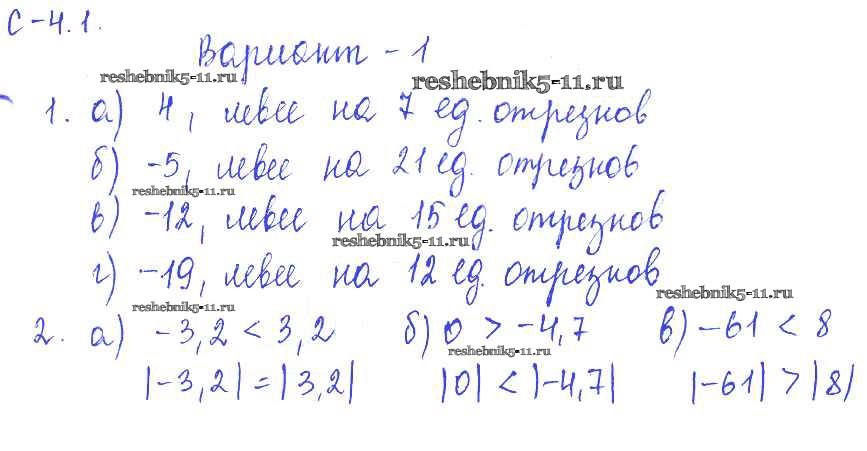 С-4.1.
Вариант - 1
reshebnik5-11.ru
reshebnik5-11.ru
1. а) 4, левее на 7 ед. отрезков
б) -5, левее на 21 ед. отрезков
reshebnik5-11.ru
в) -12, левее на 15 ед. отрезков
reshebnik5-11.ru
г) -19, левее на 12 ед. отрезков
reshebnik5-11.ru
reshebnik5-11.ru
2. а) -3,2 < 3,2 б) 0 > -4,7 в) -61 < 8
reshebnik5-11.ru
|-3,2| = |3,2| |0| < |-4,7| |-61| > |8|